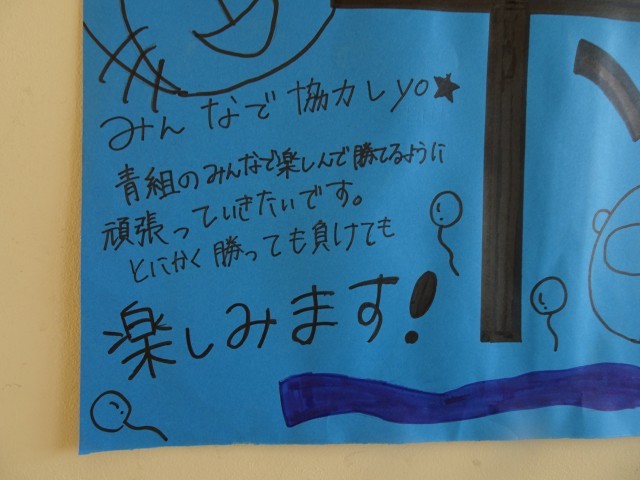 みんなで協力しyo★
青組のみんなで楽しんで勝てるように
頑張っていきたいです。
とにかく勝っても負けても
楽しみます!